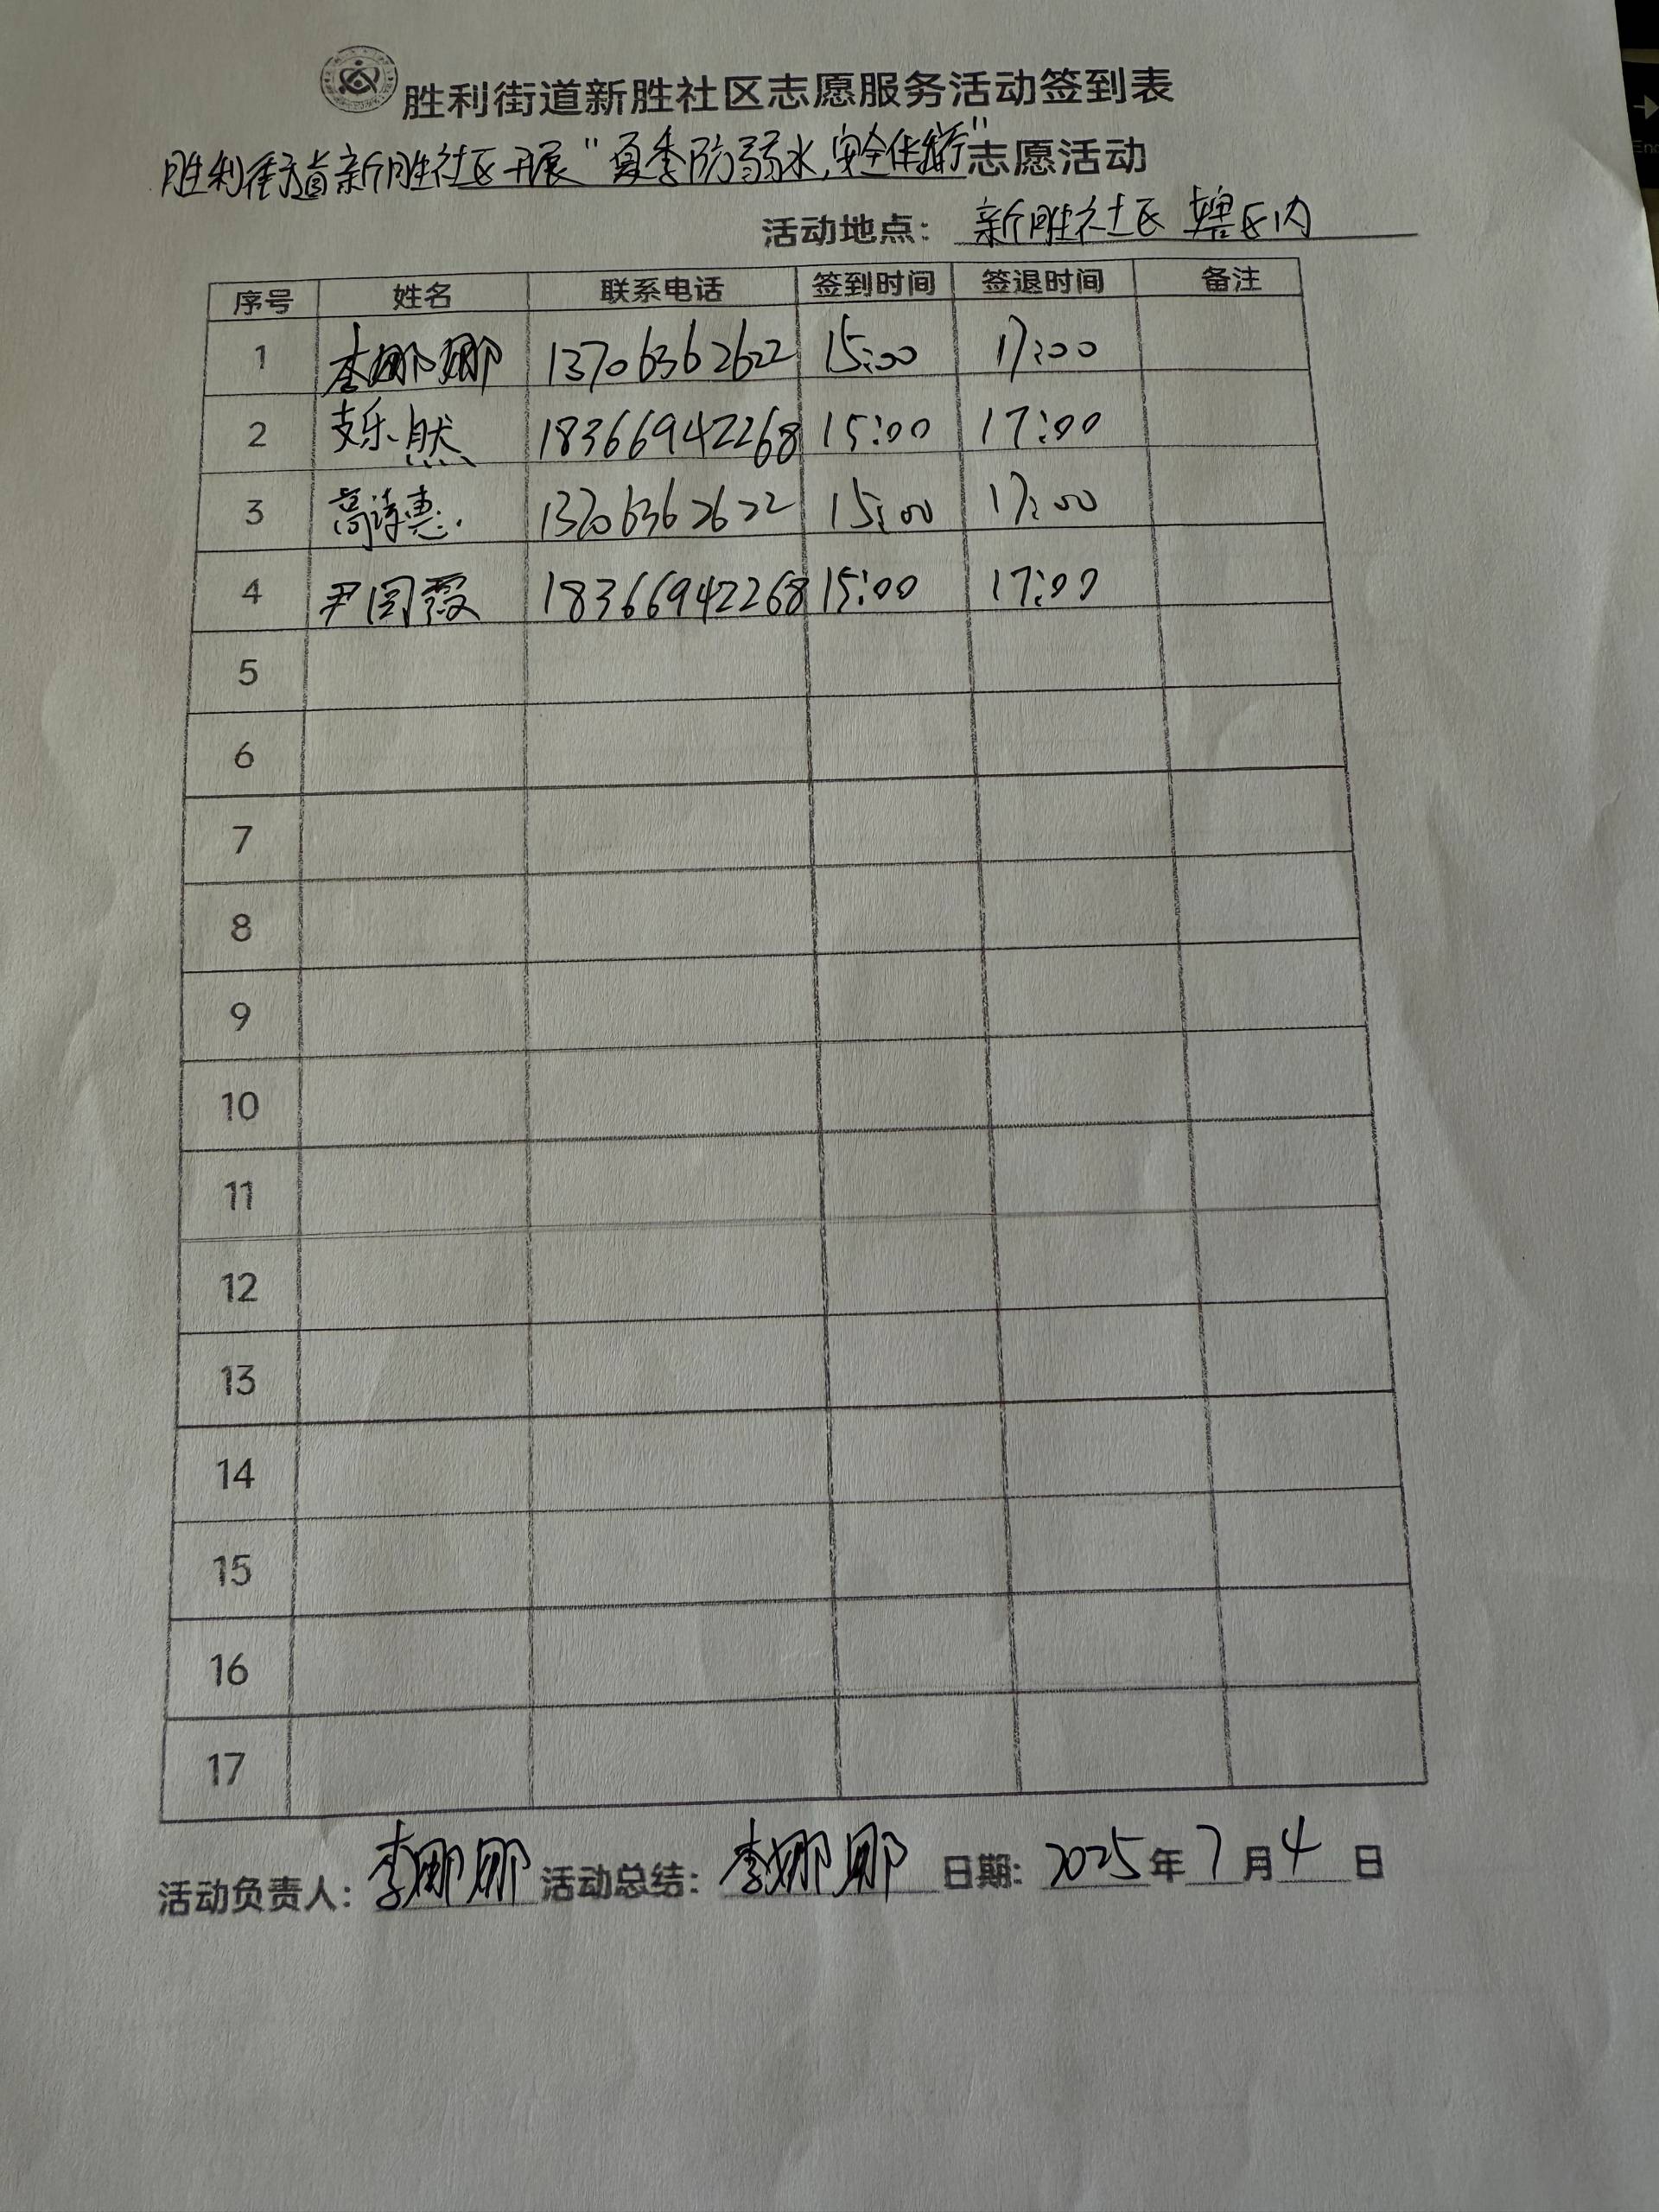 胜利街道新胜社区志愿服务活动签到表
胜利街道新胜社区开展"夏季防溺水,安全伴我行"志愿活动
活动地点: 新胜社区辖区内
序号 姓名 联系电话 签到时间 签退时间 备注
1 李娜娜 13706362622 15:00 17:00
2 支乐然 18366942268 15:00 17:00
3 高诗惠 13706362622 15:00 17:00
4 尹国霞 18366942268 15:00 17:00
5
6
7
8
9
10
11
12
13
14
15
16
17
活动负责人: 李娜娜 活动总结: 李娜娜 日期: 2025年7月4日